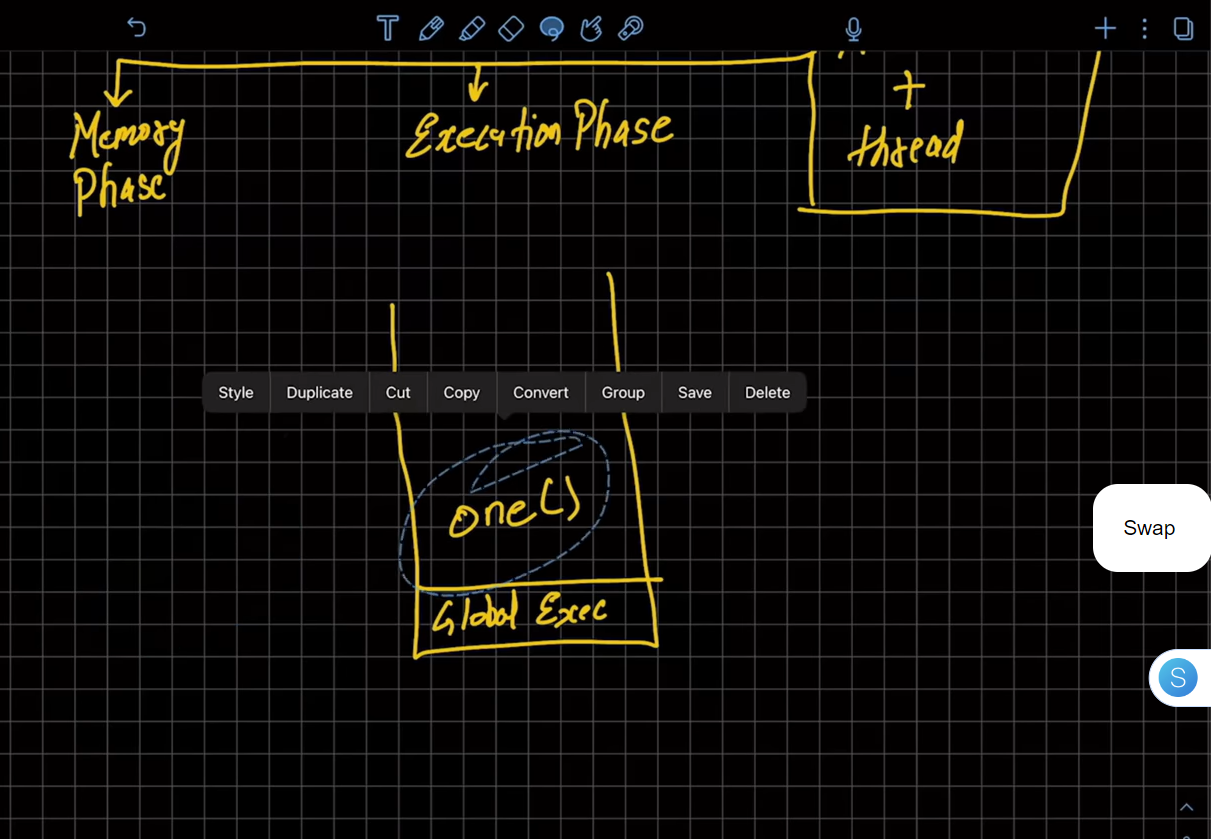 +
Memory
Phase
Execution Phase
thread
Style Duplicate Cut Copy Convert Group Save Delete
one()
Swap
Global Exec
S